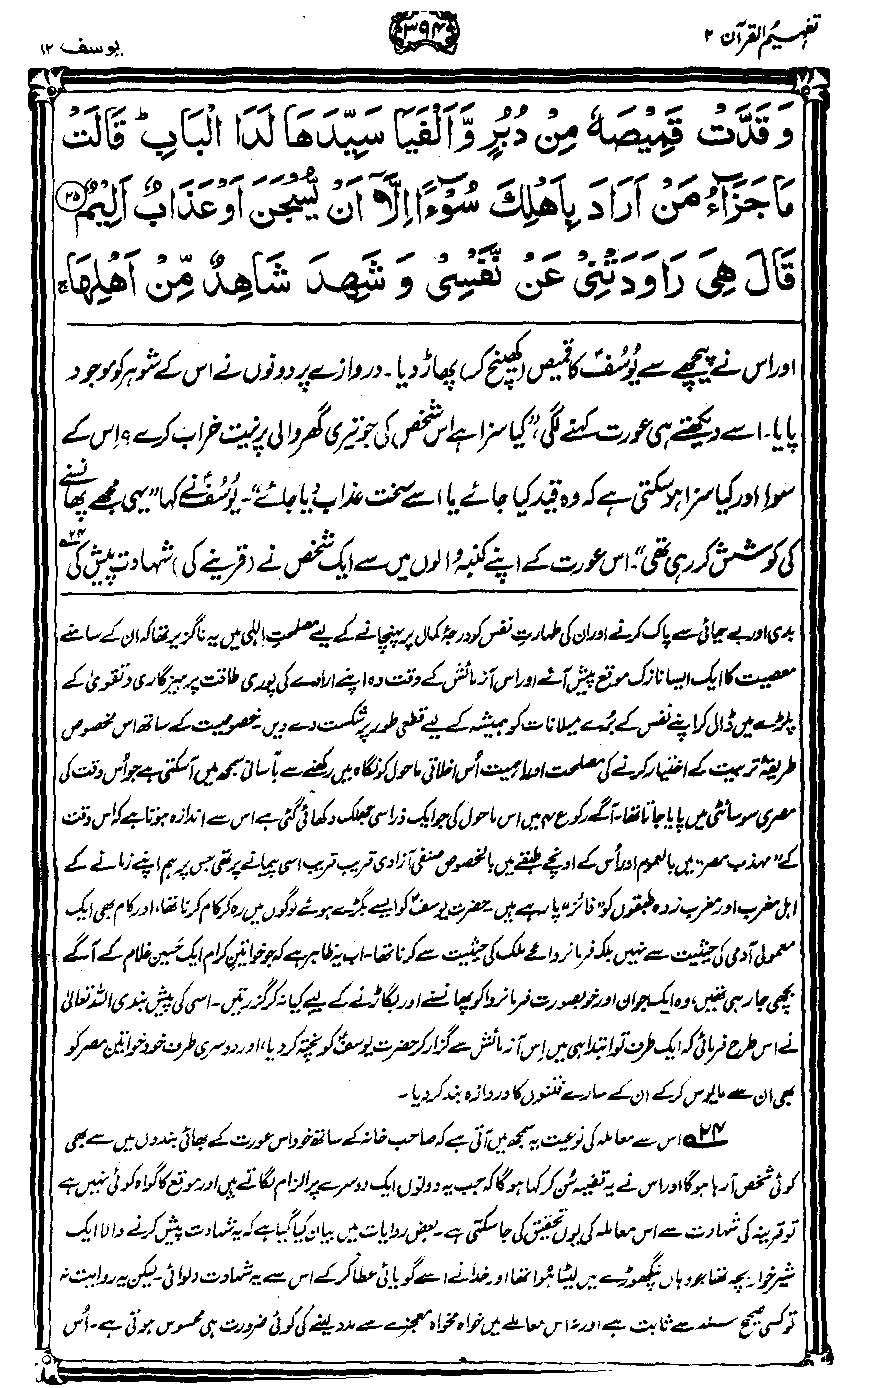 تفہیم القرآن ۲
۳۹۴
یوسف ۱۲
وَقَدَّتْ قَمِيْصَهٗ مِنْ دُبُرٍ وَّاَلْفَيَا سَيِّدَهَا لَدَا الْبَابِؕ قَالَتْ
مَا جَزَآءُ مَنْ اَرَادَ بِاَهْلِكَ سُوْٓءًا اِلَّاۤ اَنْ يُّسْجَنَ اَوْ عَذَابٌ اَلِيْمٌ ۲۵
قَالَ هِيَ رَاوَدَتْنِيْ عَنْ نَّفْسِيْ وَ شَهِدَ شَاهِدٌ مِّنْ اَهْلِهَاۚ
اور اس نے پیچھے سے یُوسُفؑ کا قمیص (کھینچ کر) پھاڑ دیا۔ دروازے پر دونوں نے اس کے شوہر کو موجود
پایا۔ اسے دیکھتے ہی عورت کہنے لگی، ”کیا سزا ہے اس شخص کی جو تیری گھر والی پر نیت خراب کرے؟ اِس کے
سوا اور کیا سزا ہو سکتی ہے کہ وہ قید کیا جائے یا اسے سخت عذاب دیا جائے“۔ یُوسُفؑ نے کہا ”یہی مجھے پھانسنے
کی کوشش کر رہی تھی“۔ اس عورت کے اپنے کنبہ والوں میں سے ایک شخص نے (قرینے کی) شہادت پیش کی ۲۴؎
بدی اور بے حیائی سے پاک کرنے اور ان کی طہارتِ نفس کو درجۂ کمال پر پہنچانے کے لیے مصلحتِ الٰہی میں یہ ناگزیر تھا کہ ان کے سامنے
معصیت کا ایک ایسا نازک موقع پیش آئے اور اس آزمائش کے وقت وہ اپنے ارادے کی پوری طاقت پرہیزگاری و تقویٰ کے
پلڑے میں ڈال کر اپنے نفس کے بُرے میلانات کو ہمیشہ کے لیے قطعی طور پر شکست دے دیں۔ خصوصیت کے ساتھ اس مخصوص
طریقۂ تربیت کے اختیار کرنے کی مصلحت اور اہمیت اُس اخلاقی ماحول کو نگاہ میں رکھنے سے بآسانی سمجھ میں آسکتی ہے جو اُس وقت کی
مصری سوسائٹی میں پایا جاتا تھا۔ آگے رکوع ۴ میں اس ماحول کی جو ایک ذرا سی جھلک دکھائی گئی ہے اس سے اندازہ ہوتا ہے کہ اس وقت
کے ”مہذب مصر“ میں بالعموم اور اُس کے اونچے طبقے میں بالخصوص صنفی آزادی قریب قریب اسی پیمانے پر تھی جس پر ہم اپنے زمانے کے
اہل مغرب اور مغرب زدہ طبقوں کو ”فائز“ پا رہے ہیں۔ حضرت یوسفؑ کو ایسے بگڑے ہوئے لوگوں میں رہ کر کام کرنا تھا، اور کام بھی ایک
معمولی آدمی کی حیثیت سے نہیں بلکہ فرمانروائے ملک کی حیثیت سے کرنا تھا۔ اب یہ ظاہر ہے کہ جو خواتینِ کرام ایک حسین غلام کے آگے
بچھی جا رہی تھیں، وہ ایک جوان اور خوبصورت فرمانروا کو پھانسنے اور بگاڑنے کے لیے کیا نہ کر گزرتیں۔ اسی کی پیش بندی اللہ تعالیٰ
نے اس طرح فرمائی کہ ایک طرف تو ابتدا ہی میں اِس آزمائش سے گزار کر حضرت یوسفؑ کو پختہ کر دیا، اور دوسری طرف خود خواتینِ مصر کو
بھی ان سے مایوس کرکے ان کے سارے فتنوں کا دروازہ بند کر دیا۔
۲۴؎ اس سے معاملہ کی نوعیت یہ سمجھ میں آتی ہے کہ صاحبِ خانہ کے ساتھ خود اس عورت کے بھائی بندوں میں سے بھی
کوئی شخص آرہا ہوگا اور اس نے یہ قضیہ سُن کر کہا ہوگا کہ جب یہ دونوں ایک دوسرے پر الزام لگاتے ہیں اور موقع کا گواہ کوئی نہیں ہے
تو قرینہ کی شہادت سے اس معاملہ کی یوں تحقیق کی جا سکتی ہے۔ بعض روایات میں بیان کیا گیا ہے کہ یہ شہادت پیش کرنے والا ایک
شیرخوار بچہ تھا جو وہاں پنگھوڑے میں لیٹا ہوا تھا اور خدا نے اسے گویائی عطا کرکے اس سے یہ شہادت دلوائی۔ لیکن یہ روایت نہ
تو کسی صحیح سند سے ثابت ہے اور نہ اس معاملے میں خواہ مخواہ معجزے سے مدد لینے کی کوئی ضرورت ہی محسوس ہوتی ہے۔ اُس